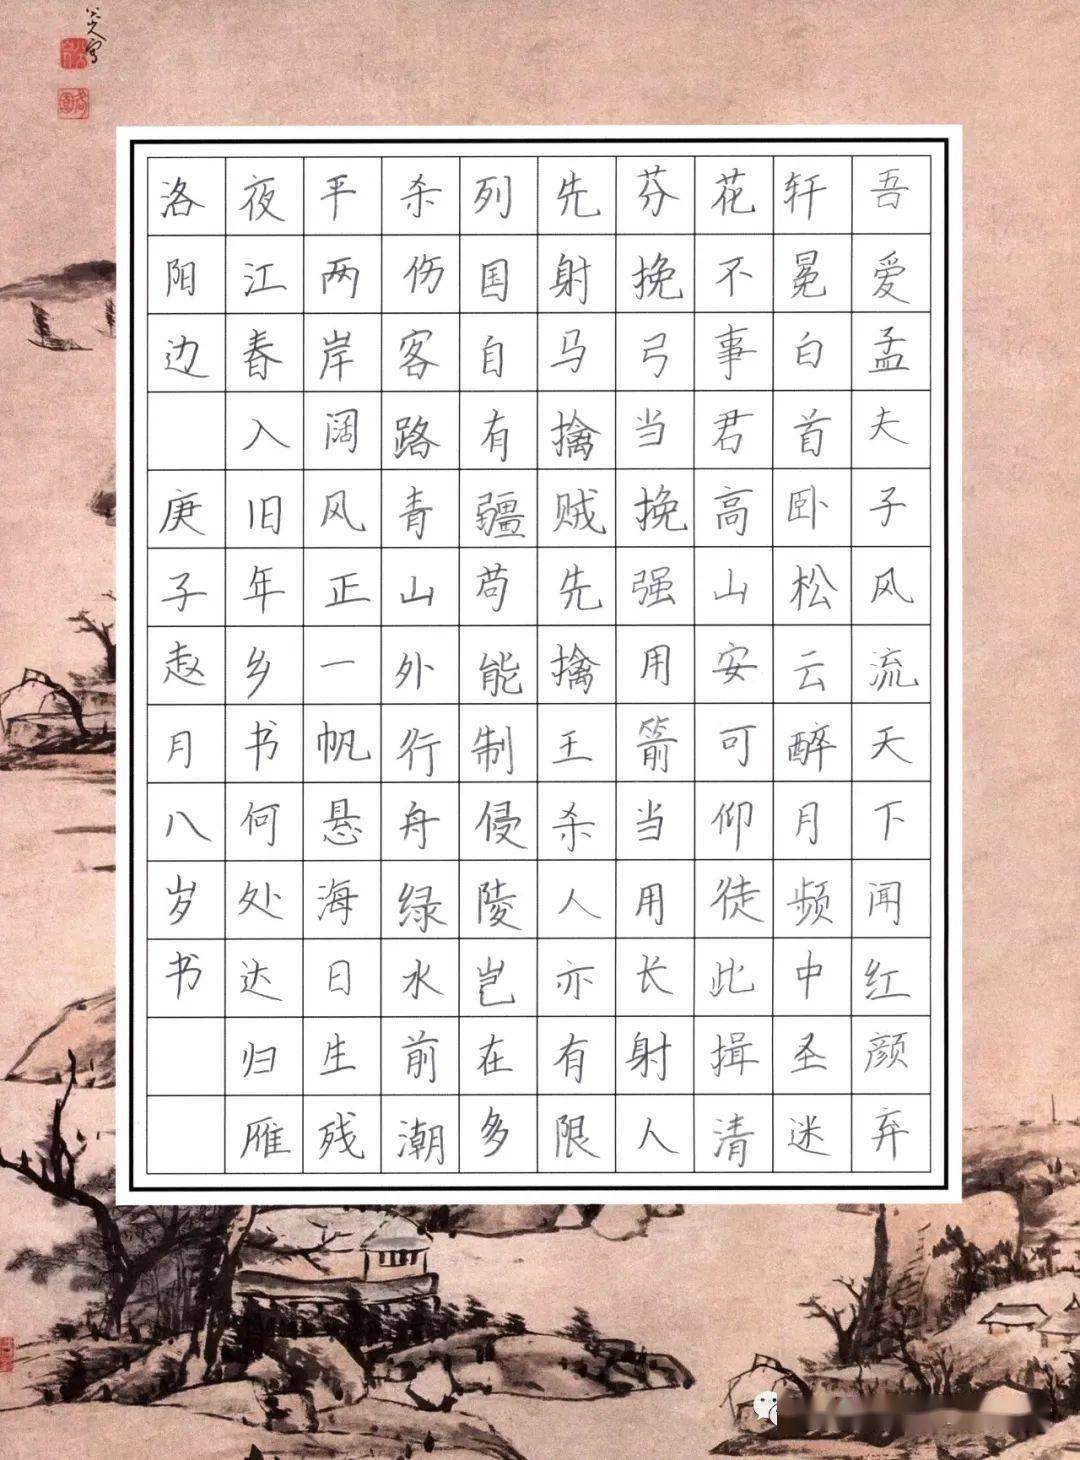 吾爱孟夫子风流天下闻红颜弃
轩冕白首卧松云醉月频中圣迷
花不事君高山安可仰徒此揖清
芬挽弓当挽强用箭当用长射人
先射马擒贼先擒王杀人亦有限
列国自有疆苟能制侵陵岂在多
杀伤客路青山外行舟绿水前潮
平两岸阔风正一帆悬海日生残
夜江春入旧年乡书何处达归雁
洛阳边 庚子赵月八岁书